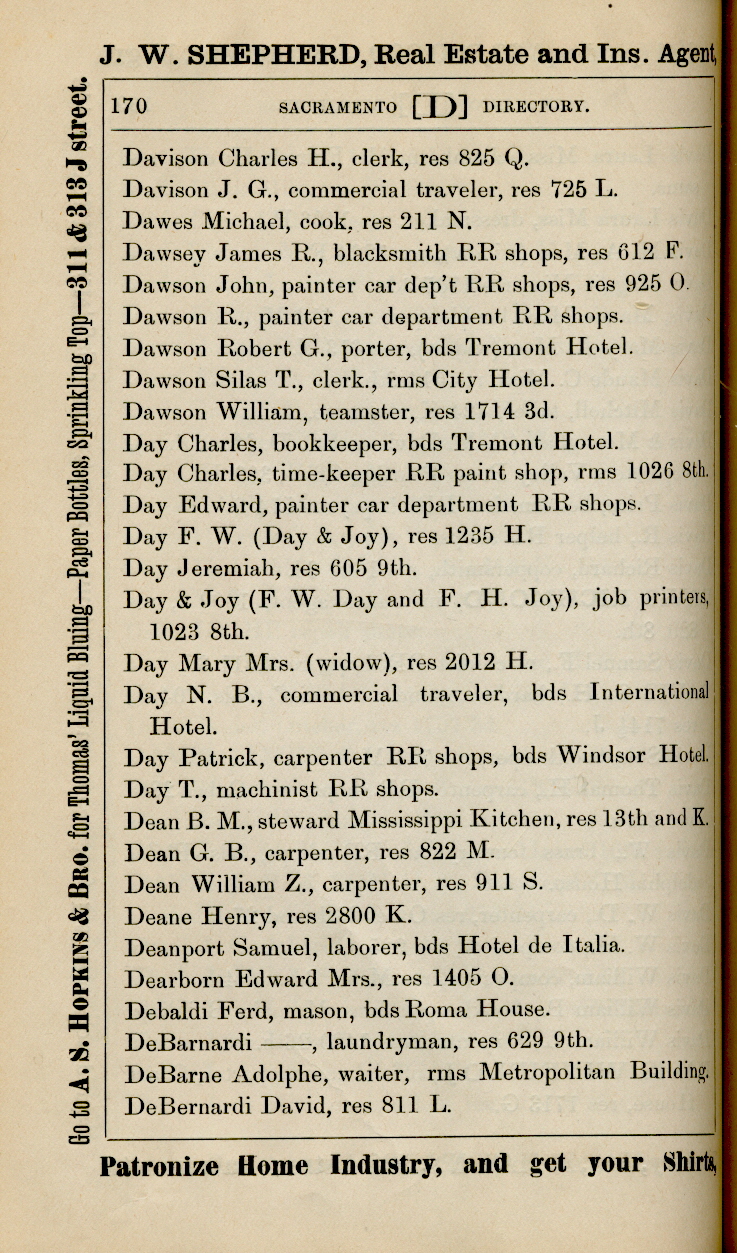 J. W. SHEPHERD, Real Estate and Ins. Agent,
170 SACRAMENTO [D] DIRECTORY.
Davison Charles H., clerk, res 825 Q.
Davison J. G., commercial traveler, res 725 L.
Dawes Michael, cook, res 211 N.
Dawsey James R., blacksmith RR shops, res 612 F.
Dawson John, painter car dep't RR shops, res 925 O.
Dawson R., painter car department RR shops.
Dawson Robert G., porter, bds Tremont Hotel.
Dawson Silas T., clerk., rms City Hotel.
Dawson William, teamster, res 1714 3d.
Day Charles, bookkeeper, bds Tremont Hotel.
Day Charles, time-keeper RR paint shop, rms 1026 8th.
Day Edward, painter car department RR shops.
Day F. W. (Day & Joy), res 1235 H.
Day Jeremiah, res 605 9th.
Day & Joy (F. W. Day and F. H. Joy), job printers,
1023 8th.
Day Mary Mrs. (widow), res 2012 H.
Day N. B., commercial traveler, bds International
Hotel.
Day Patrick, carpenter RR shops, bds Windsor Hotel.
Day T., machinist RR shops.
Dean B. M., steward Mississippi Kitchen, res 13th and K.
Dean G. B., carpenter, res 822 M.
Dean William Z., carpenter, res 911 S.
Deane Henry, res 2800 K.
Deanport Samuel, laborer, bds Hotel de Italia.
Dearborn Edward Mrs., res 1405 O.
Debaldi Ferd, mason, bds Roma House.
DeBarnardi ——, laundryman, res 629 9th.
DeBarne Adolphe, waiter, rms Metropolitan Building.
DeBernardi David, res 811 L.
Patronize Home Industry, and get your Shirts,
Go to A. S. HOPKINS & BRO. for Thomas' Liquid Bluing—Paper Bottles, Sprinkling Top—311 & 313 J street.